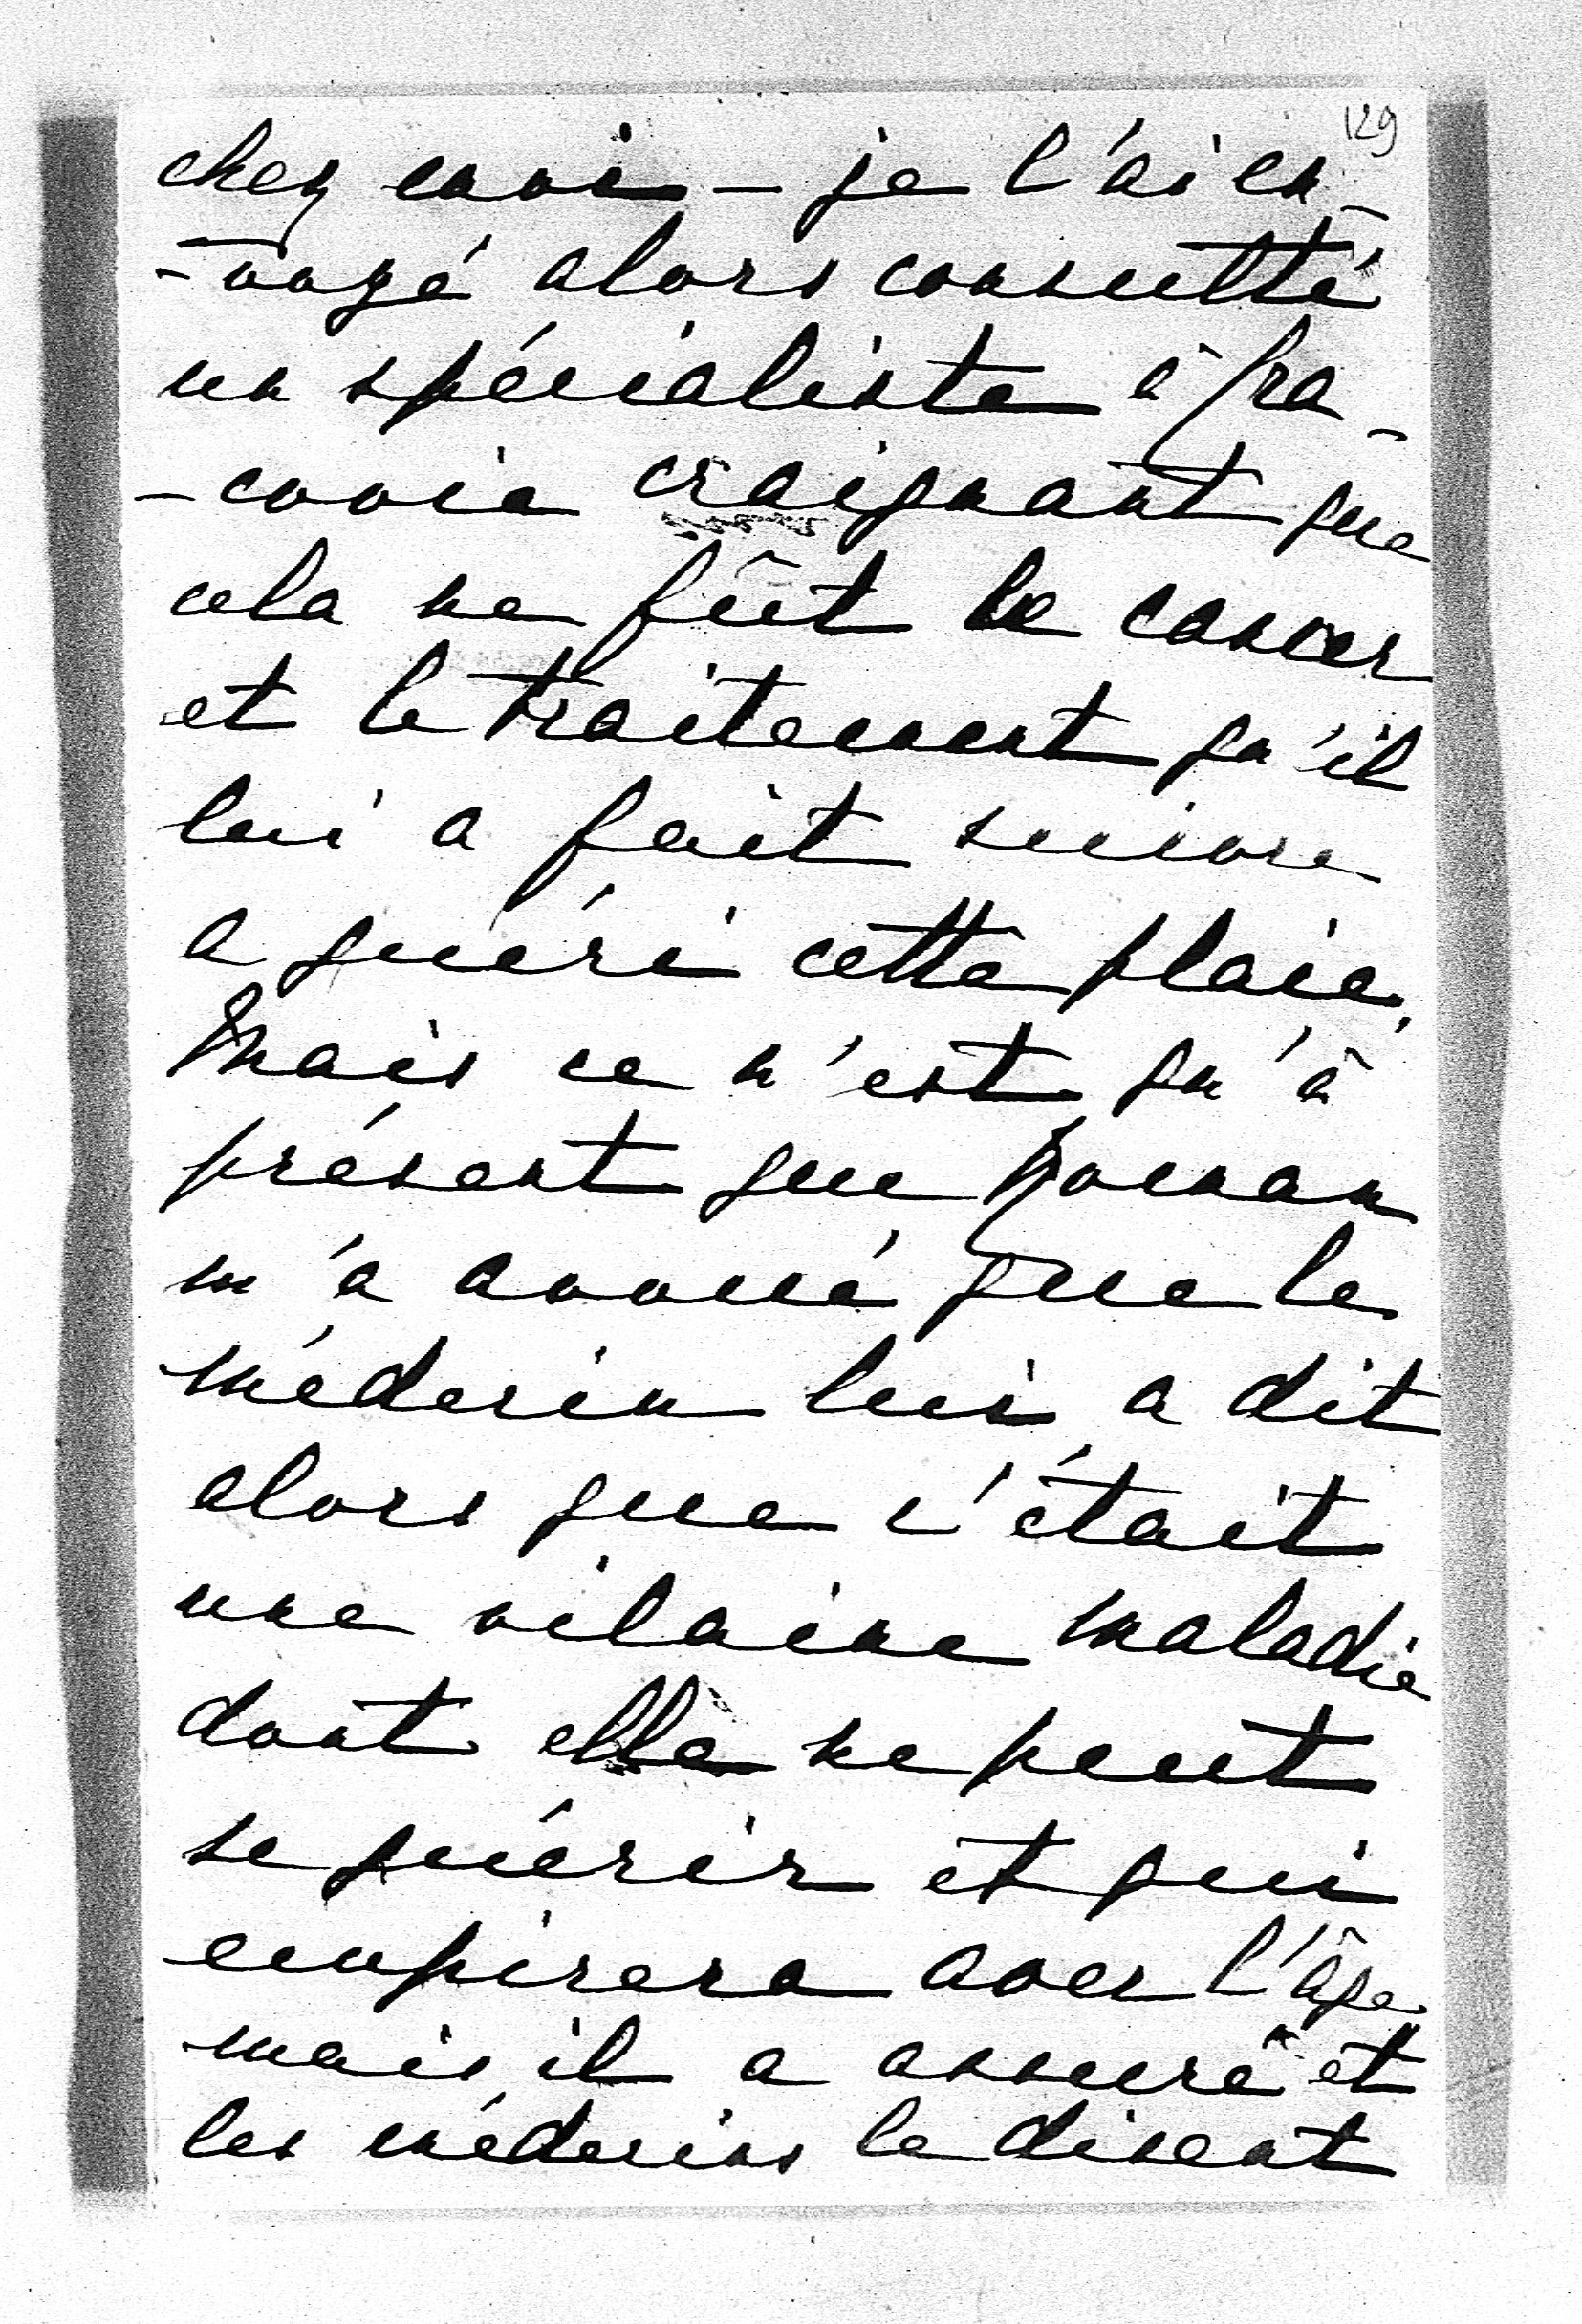 129
chez moi – je l'ai en-
-voyé alors consulté
un spécialiste à Cra-
-covie craignant que
cela ne fût le cancer
et le traitement qu'il
lui a fait suivre
a guéri cette plaie,
Mais ce n'est qu'à
présent que Roman
m'a avoué que le
médecin lui a dit
alors que c'était
une vilaine maladie
dont elle ne peut
se guérir et qui
empirera avec l'âge
mais il a assuré et
les médecins le disent